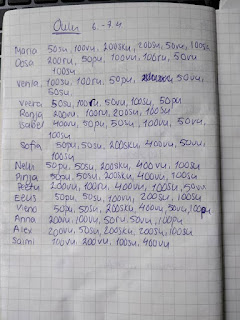 Oulu 6-7.4
Maria 50su, 100vu, 200sku, 200su, 50vu, 100su
Oosa 200ru, 50pu, 100vu, 100ru, 50vu
100su
Venla, 100su, 100ru, 50pu, 50vu,
50su
Viera 50su, 100ru, 50vu, 100su, 50pu
Ronja 200vu, 100ru, 200su, 100su
Isabel 400vu, 50pu, 50su, 100ru, 50vu
100su
Sofia 50pu, 50su, 200sku, 400vu, 50vu
100su
Nelli 50pu, 50su, 200sku, 400vu, 100su
Pinja 50pu, 50su, 200sku, 400vu, 100su
Pettu 200vu, 100ru, 400vu, 100su, 50vu
Eelis 50pu, 50su, 100vu, 200su, 100su
Vieno 50pu, 50su, 200sku, 400vu, 50vu, 100pu
Anna 200vu, 100vu, 50ru, 50vu, 100pu
Alex 200vu, 50su, 200sku, 200su, 100su
Saimi 100vu, 200vu, 100su, 400vu